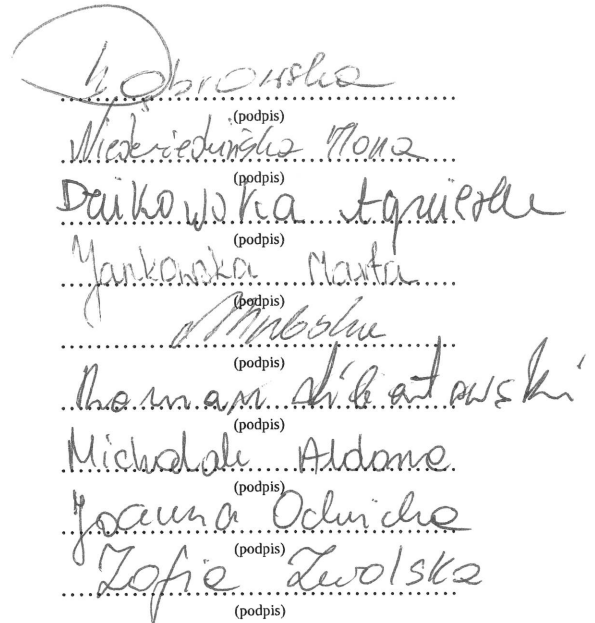 Dąbrowska
(podpis)
Niedźwiedzińska Ilona
(podpis)
Dzikowska Agnieszka
(podpis)
Jankowska Marta
(podpis)
(podpis)
Roman
(podpis)
Michalak Aldona
(podpis)
Joanna
(podpis)
Zofia Zwolska
(podpis)